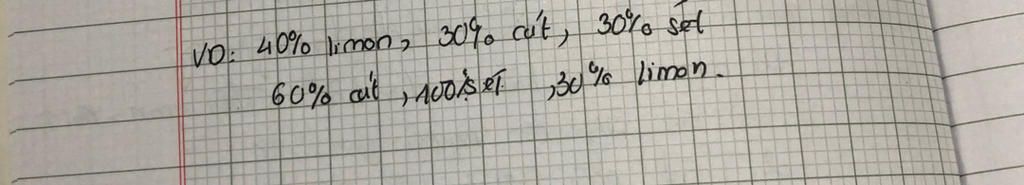 VD: 40% limon, 30% cát, 30% sét
60% cát, 10% sét, 30% limon.